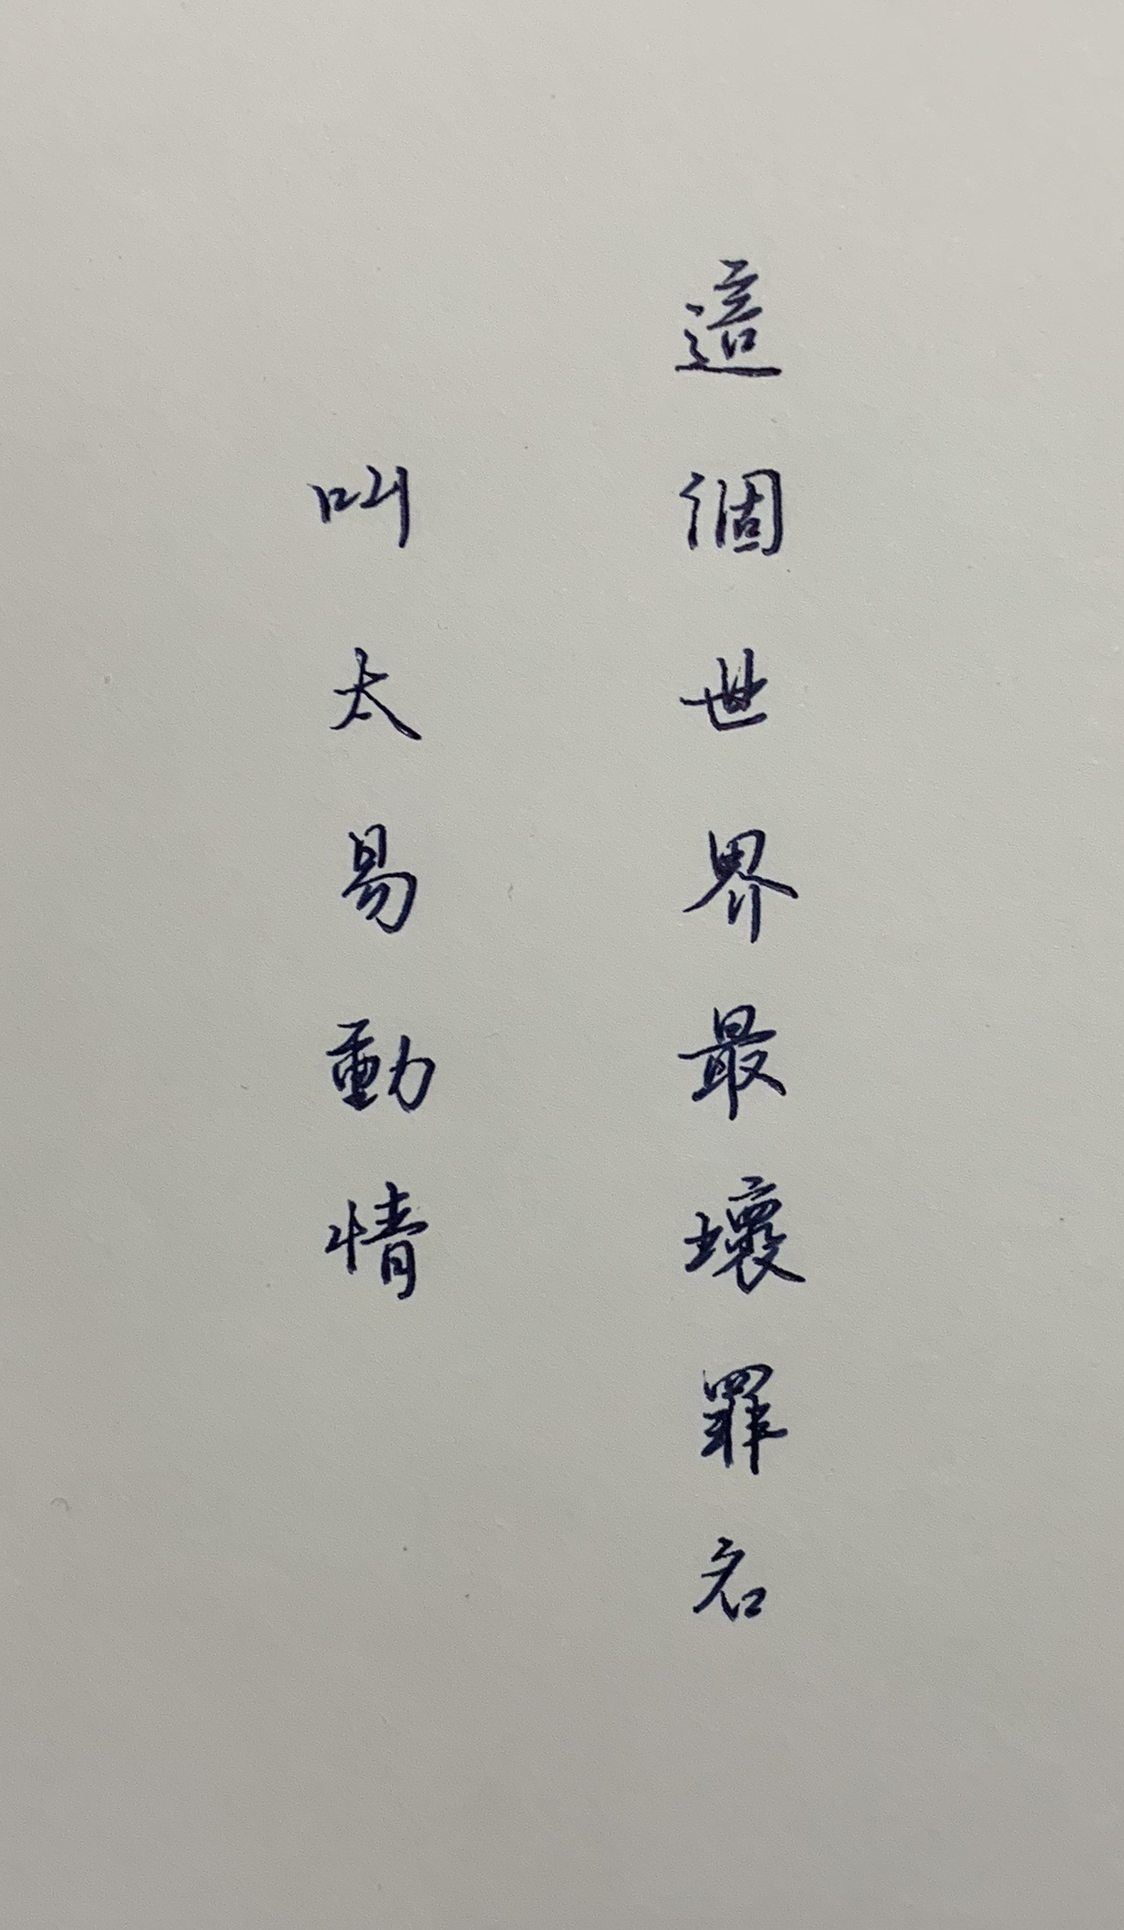 這個世界最壞罪名
叫太易動情